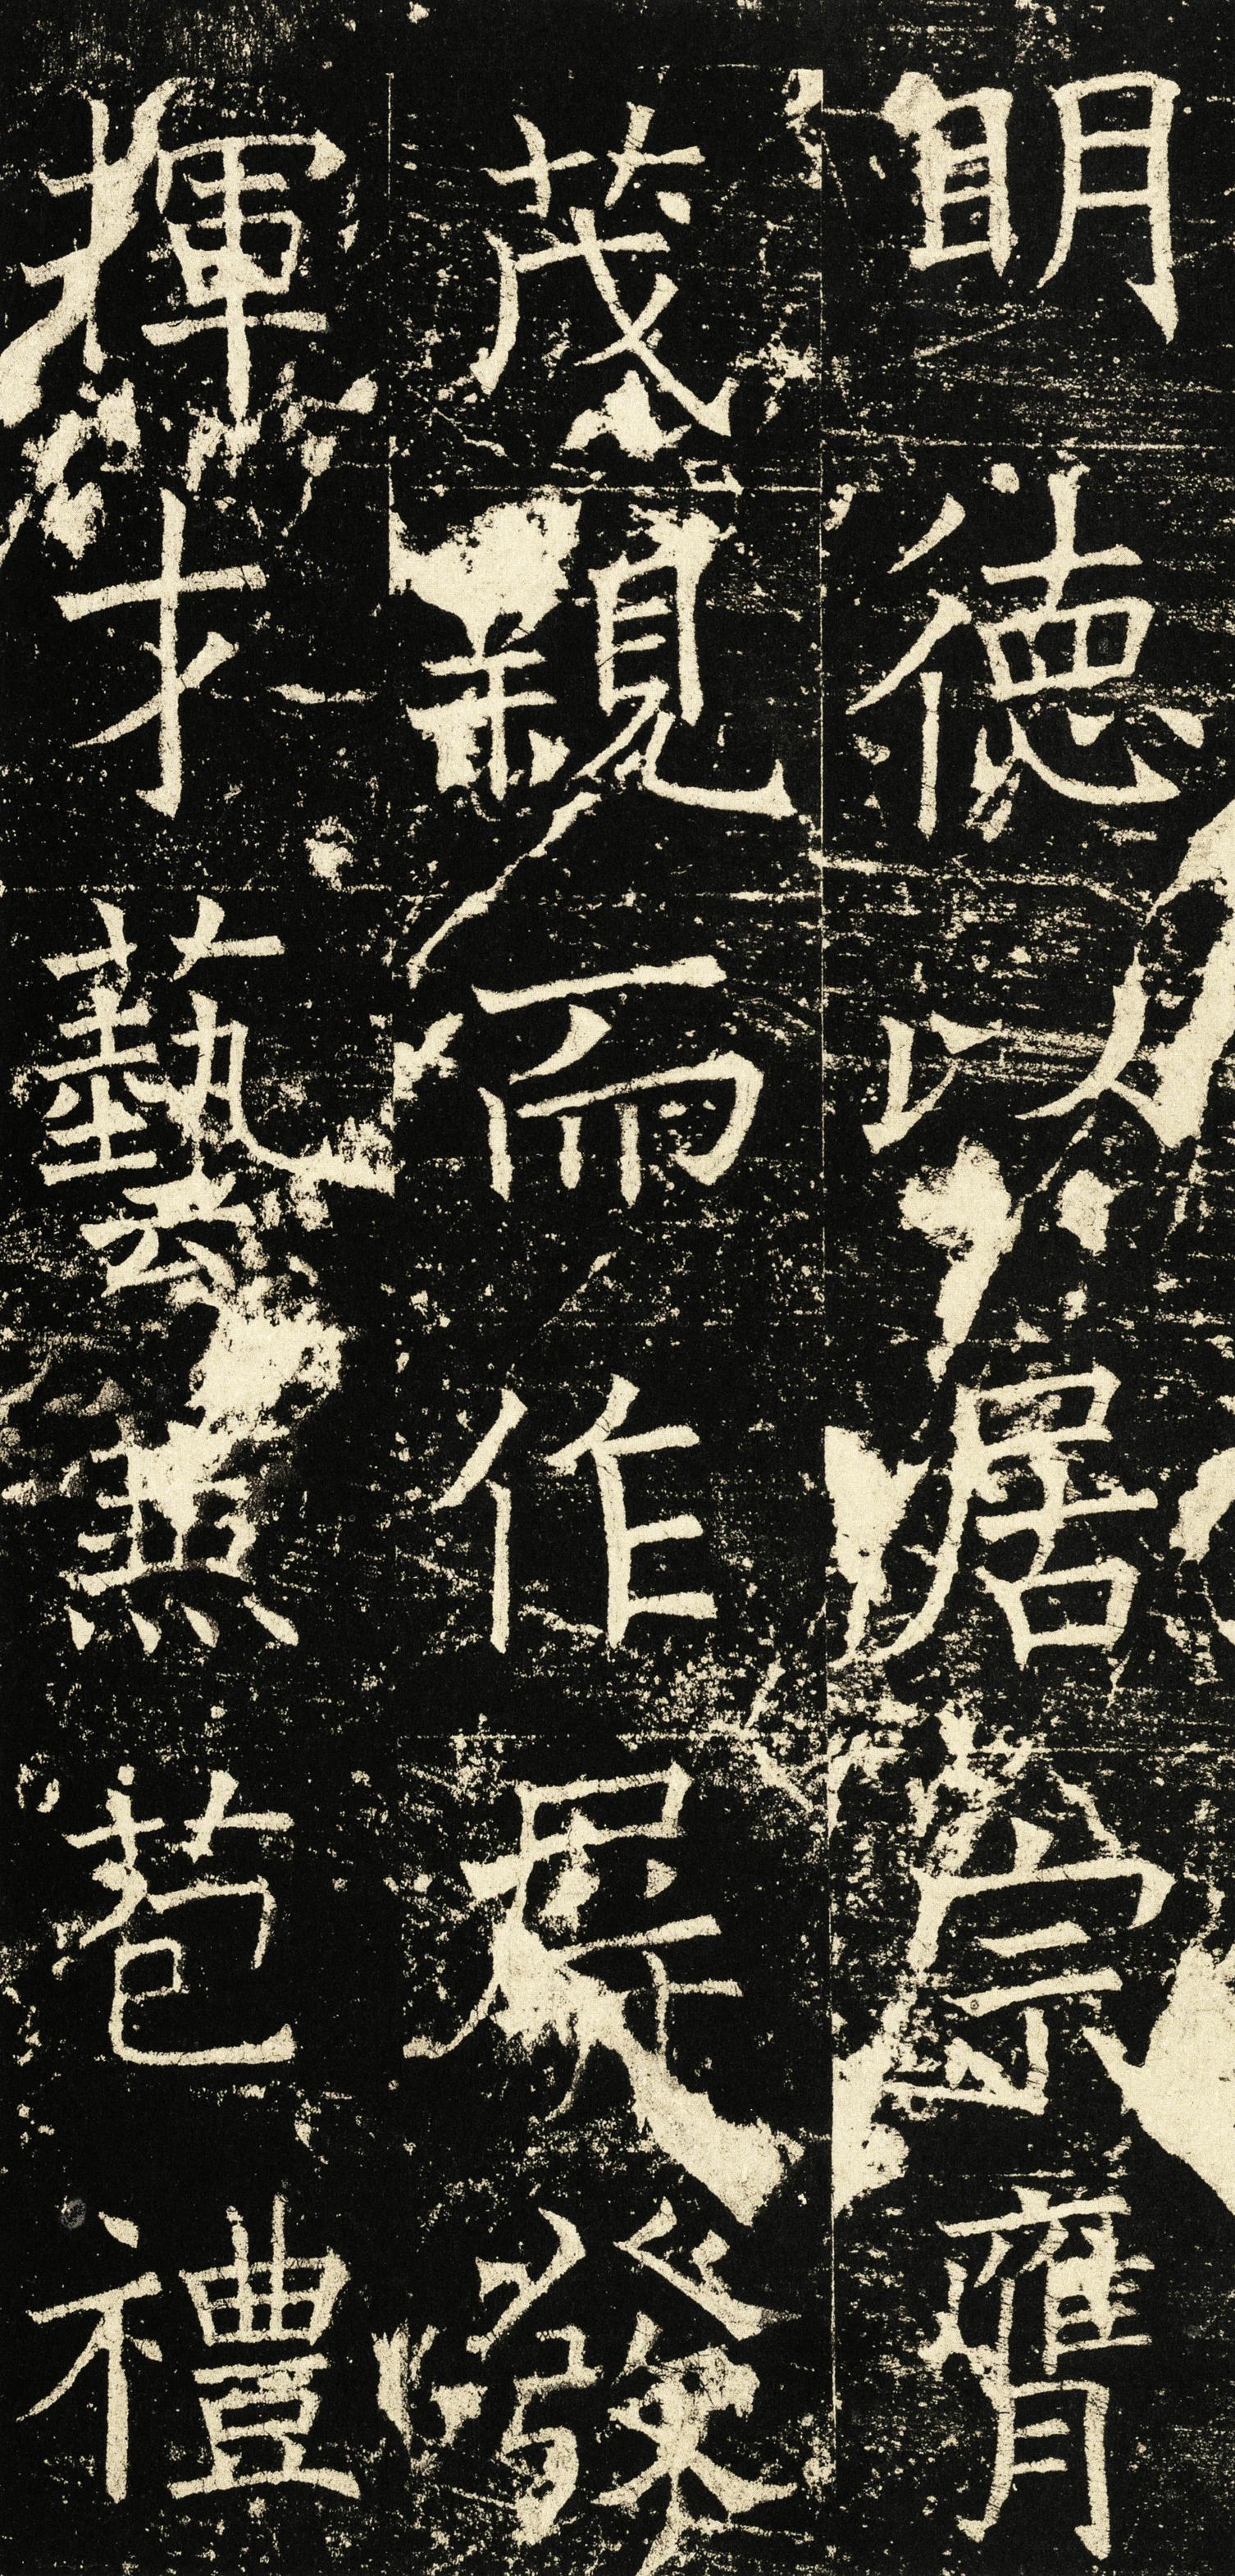 眀德以居宗膺
茂親而作屏發
揮才藝兼苞禮